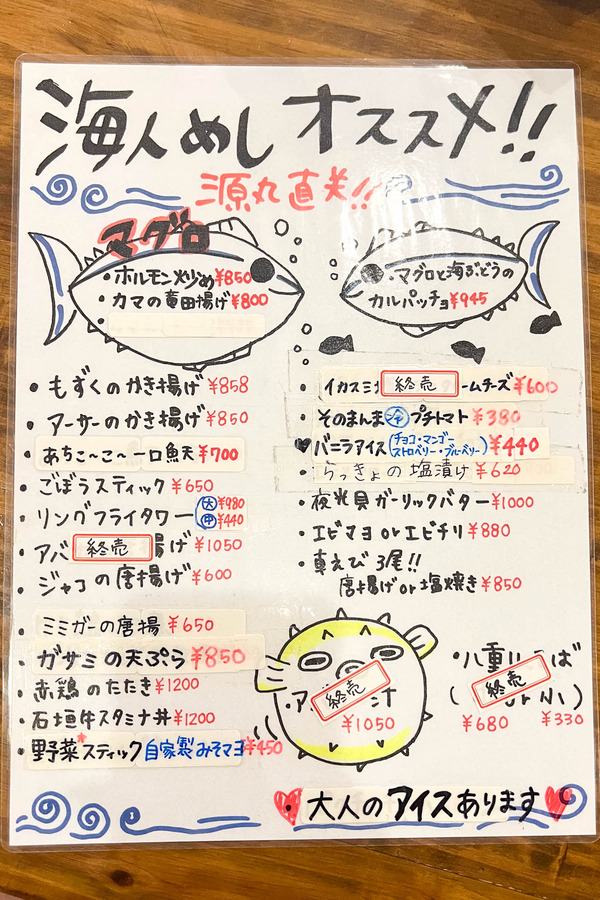 海人めしオススメ!!
源丸直送!!
マグロ
・ホルモン炒め¥850
・カマの竜田揚げ¥800
・マグロと海ぶどうの
カルパッチョ¥945
・もずくのかき揚げ ¥858
・アーサーのかき揚げ ¥850
・あちこ〜こ〜一口魚天 ¥700
・ごぼうスティック ¥650
・リングフライタワー 大 ¥980
中 ¥440
・アバ 終売 揚げ ¥1050
・ジャコの唐揚げ ¥600
・ミミガーの唐揚 ¥650
・ガサミの天ぷら ¥850
・赤鶏のたたき ¥1200
・石垣牛スタミナ丼 ¥1200
・野菜スティック 自家製みそマヨ ¥450
・イカスミ 終売 ームチーズ ¥600
・そのまんま 冷 プチトマト ¥380
♥バニラアイス(チョコ・マンゴー
ストロベリー・ブルーベリー) ¥440
・らっきょの塩漬け ¥620
・夜光貝ガーリックバター ¥1000
・エビマヨ or エビチリ ¥880
・車えび 3尾!!
唐揚げ or 塩焼き ¥850
・ア 終売 汁
¥1050
・八重 そば
( 終売 or 小)
¥680 ¥330
・大人のアイスあります